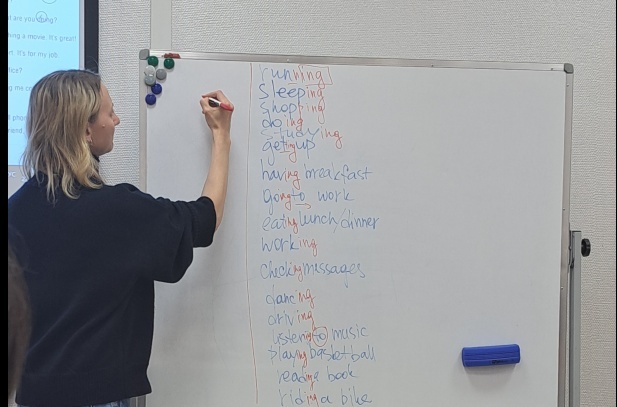 t are you doing?
ing a movie. It's great!
rt. It's for my job.
fice?
running
sleeping
shopping
doing
studying
getting up
having breakfast
going to work
eating lunch/dinner
working
checking messages
dancing
driving
listening to music
playing basketball
reading book
riding a bike